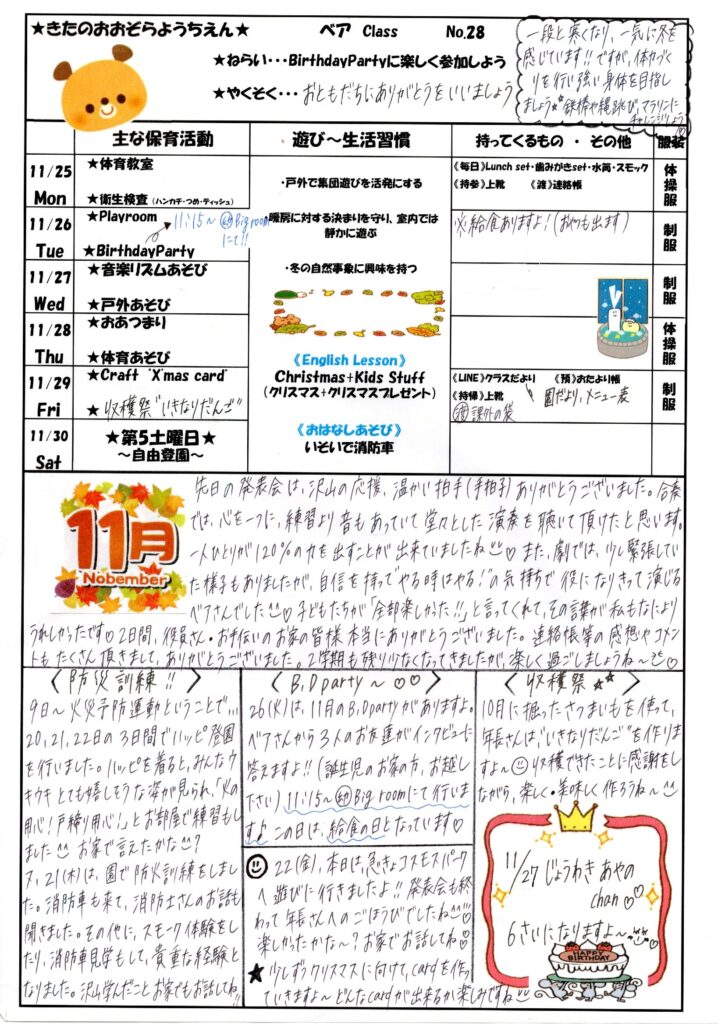 ★きたのおおぞらようちえん★
ベア Class No.28
★ねらい･･･BirthdayPartyに楽しく参加しよう
★やくそく･･･おともだちにありがとうをいいましょう
一段と寒くなり、一気に冬を
感じています!! ですが、体力づく
りを行い強い身体を目指し
ましょう★ 鉄棒や縄跳び、マラソンに
チャレンジしよう♡
主な保育活動 遊び～生活習慣 持ってくるもの ・ その他 服装
11/25
Mon
★体育教室
★衛生検査（ハンカチ・つめ・ティッシュ）
・戸外で集団遊びを活発にする
《毎日》Lunch set・歯みがきset・水筒・スモック
《持参》上靴 《渡》連絡帳
体操服
11/26
Tue
★Playroom
★BirthdayParty
11:15～ ㊗Big room
にて!!
・暖房に対する決まりを守り、室内では
静かに遊ぶ
※給食ありますよ！(おやつも出ます)
制服
11/27
Wed
★音楽リズムあそび
★戸外あそび
・冬の自然事象に興味を持つ
制服
11/28
Thu
★おあつまり
★体育あそび
《English Lesson》
Christmas+Kids Stuff
(クリスマス+クリスマスプレゼント)
体操服
11/29
Fri
★Craft "X'mas card"
★収穫祭"いきなりだんご"
《LINE》クラスだより 《預》おたより帳
《持帰》上靴 園だより、メニュー表
課外の袋
制服
11/30
Sat
★第5土曜日★
～自由登園～
《おはなしあそび》
いそいで消防車
11月
Nobember
先日の発表会は、沢山の応援、温かい拍手(手拍子)ありがとうございました。合奏
では、心を一つに、練習より音もあっていて堂々とした演奏を聴いて頂けたと思います。
一人ひとりが120%の力を出すことが出来ていましたね♡ また、劇では、少し緊張してい
た様子もありましたが、自信を持って"やる時はやる！"の気持ちで役になりきって演じる
ベアさんでした♡ 子どもたちが「全部楽しかった!!」と言ってくれて、その言葉が私もなにより
うれしかったです♡ 2日間、役員さん・お手伝いのお家の皆様本当にありがとうございました。連絡帳等の感想やコメン
トもたくさん頂きまして、ありがとうございました。2学期も残り少なくなってきましたが、楽しく過ごしましょうね～♡
〈防災訓練!!〉
9日～火災予防運動ということで…
20、21、22日の3日間でハッピ登園
を行いました。ハッピを着ると、みんなウ
キウキとても嬉しそうな姿が見られ、「火の
用心！戸締り用心！」とお部屋で練習もし
ました お家で言えたかな？
又、21(木)は、園で防災訓練をしまし
た。消防車も来て、消防士さんのお話も
聞きました。その他に、スモーク体験をし
たり、消防車見学もして、貴重な経験と
なりました。沢山学んだことお家でもお話してね!!
〈B.Dparty～♡♡〉
26(火)は、11月のB.Dpartyがありますよ。
ベアさんから3人のお友達がインタビューに
答えますよ!!(誕生児のお家の方、お越し
下さい) 11:15～㊗Big roomにて行いま
すよ この日は、給食の日となっています♡
22(金)、本日は、急きょコスモスパーク
へ遊びに行きましたよ!! 発表会も終
わって年長さんへのごほうびでしたね♡
楽しかったかな～？お家でお話してね♡
★少しずつクリスマスに向けて、cardを作っ
ていきますよ～どんなcardが出来るか楽しみですね
〈収穫祭★★〉
10月に掘ったさつまいもを使って、
年長さんは、"いきなりだんご"を作りま
すよ～ 収穫できたことに感謝をし
ながら、楽しく・美味しく作ろうね～
11/27 じょうわき あやの
chan♡♡
6さいになりますよ～
HAPPY
BIRTHDAY